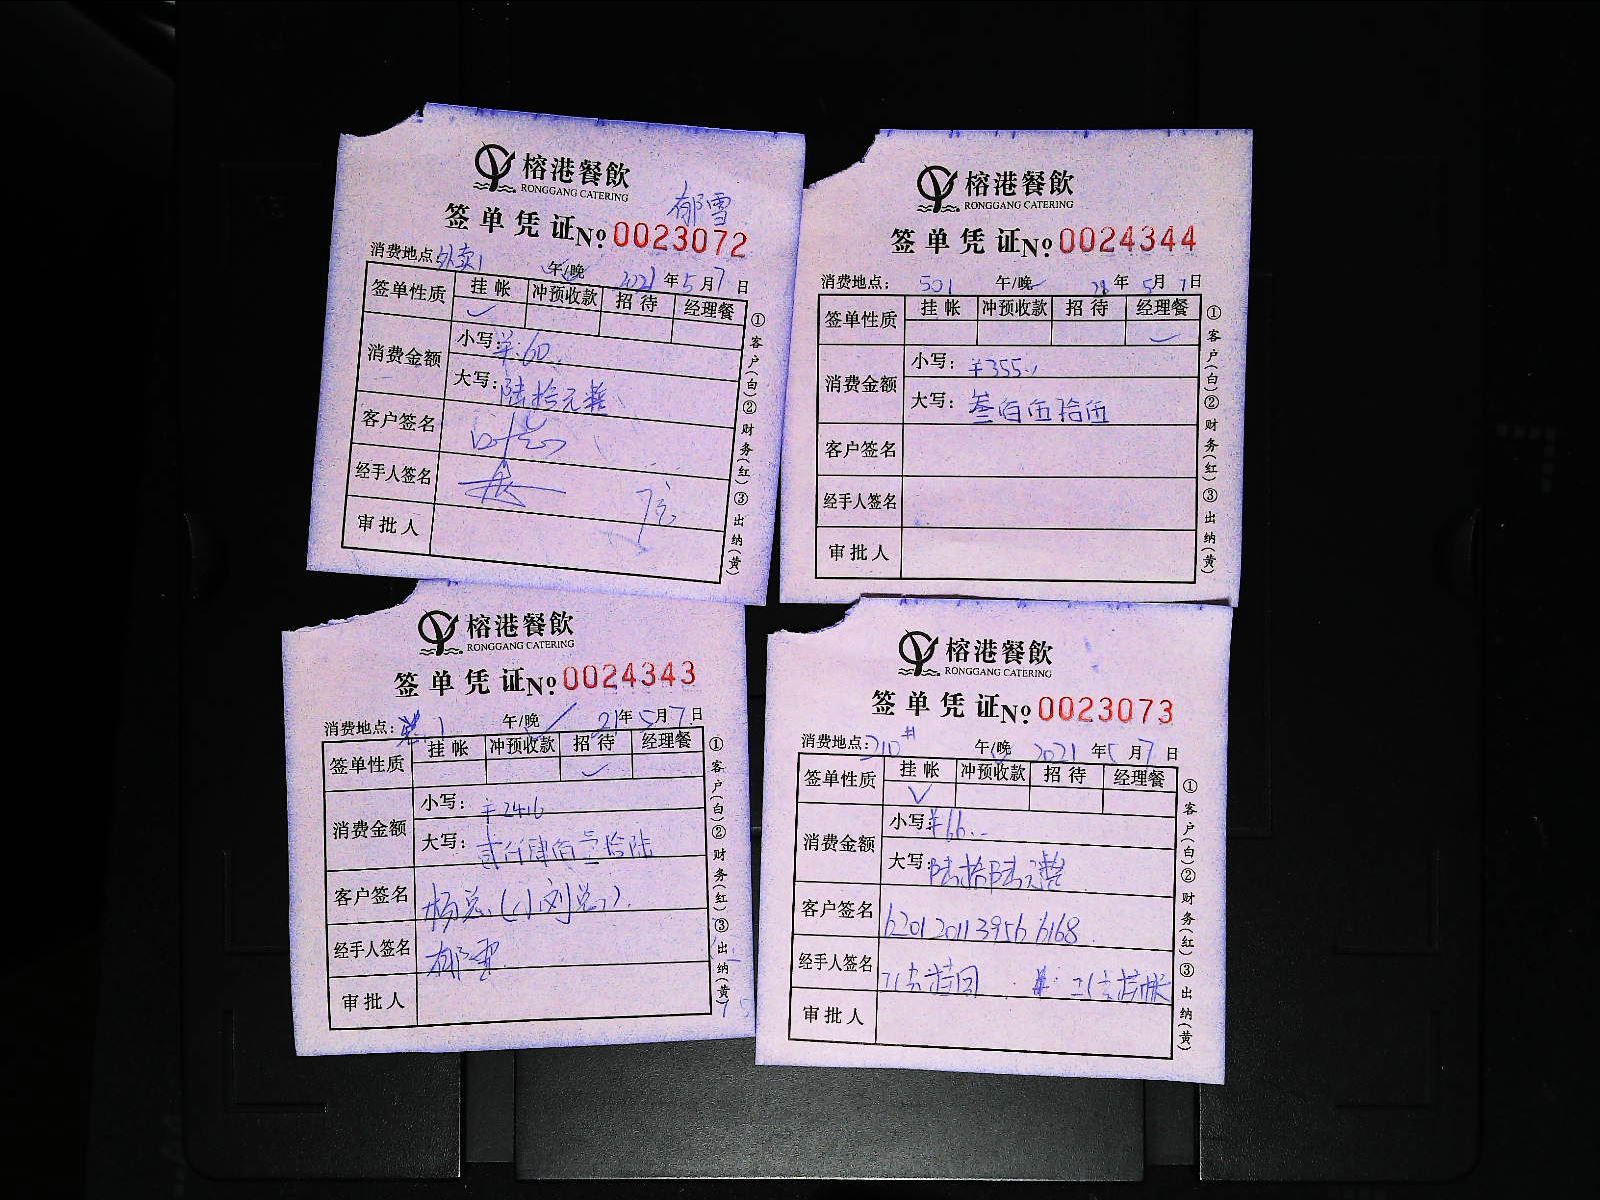 榕港餐飲
RONGGANG CATERING
郁雪
签单凭证 No 0023072
消费地点 外卖1 午/晚 2021年5月7日
签单性质 挂帐 冲预收款 招待 经理餐
✓
消费金额 小写: ¥:60.
大写: 陆拾元整
客户签名
经手人签名
审批人
①客户(白)②财务(红)③出纳(黄)
榕港餐飲
RONGGANG CATERING
签单凭证 No 0024344
消费地点: 501 午/晚 21年5月7日
签单性质 挂帐 冲预收款 招待 经理餐
✓
消费金额 小写: ¥355.
大写: 叁佰伍拾伍
客户签名
经手人签名
审批人
①客户(白)②财务(红)③出纳(黄)
榕港餐飲
RONGGANG CATERING
签单凭证 No 0024343
消费地点: 1 午/晚 21年5月7日
签单性质 挂帐 冲预收款 招待 经理餐
✓
消费金额 小写: ¥2416
大写: 贰仟肆佰壹拾陆
客户签名 杨总(小刘总)
经手人签名 郁雪
审批人
①客户(白)②财务(红)③出纳(黄)
榕港餐飲
RONGGANG CATERING
签单凭证 No 0023073
消费地点: 210# 午/晚 2021年5月7日
签单性质 挂帐 冲预收款 招待 经理餐
✓
消费金额 小写: ¥66.
大写: 陆拾陆元整
客户签名 6201 2011 3956 6168
经手人签名
审批人
①客户(白)②财务(红)③出纳(黄)